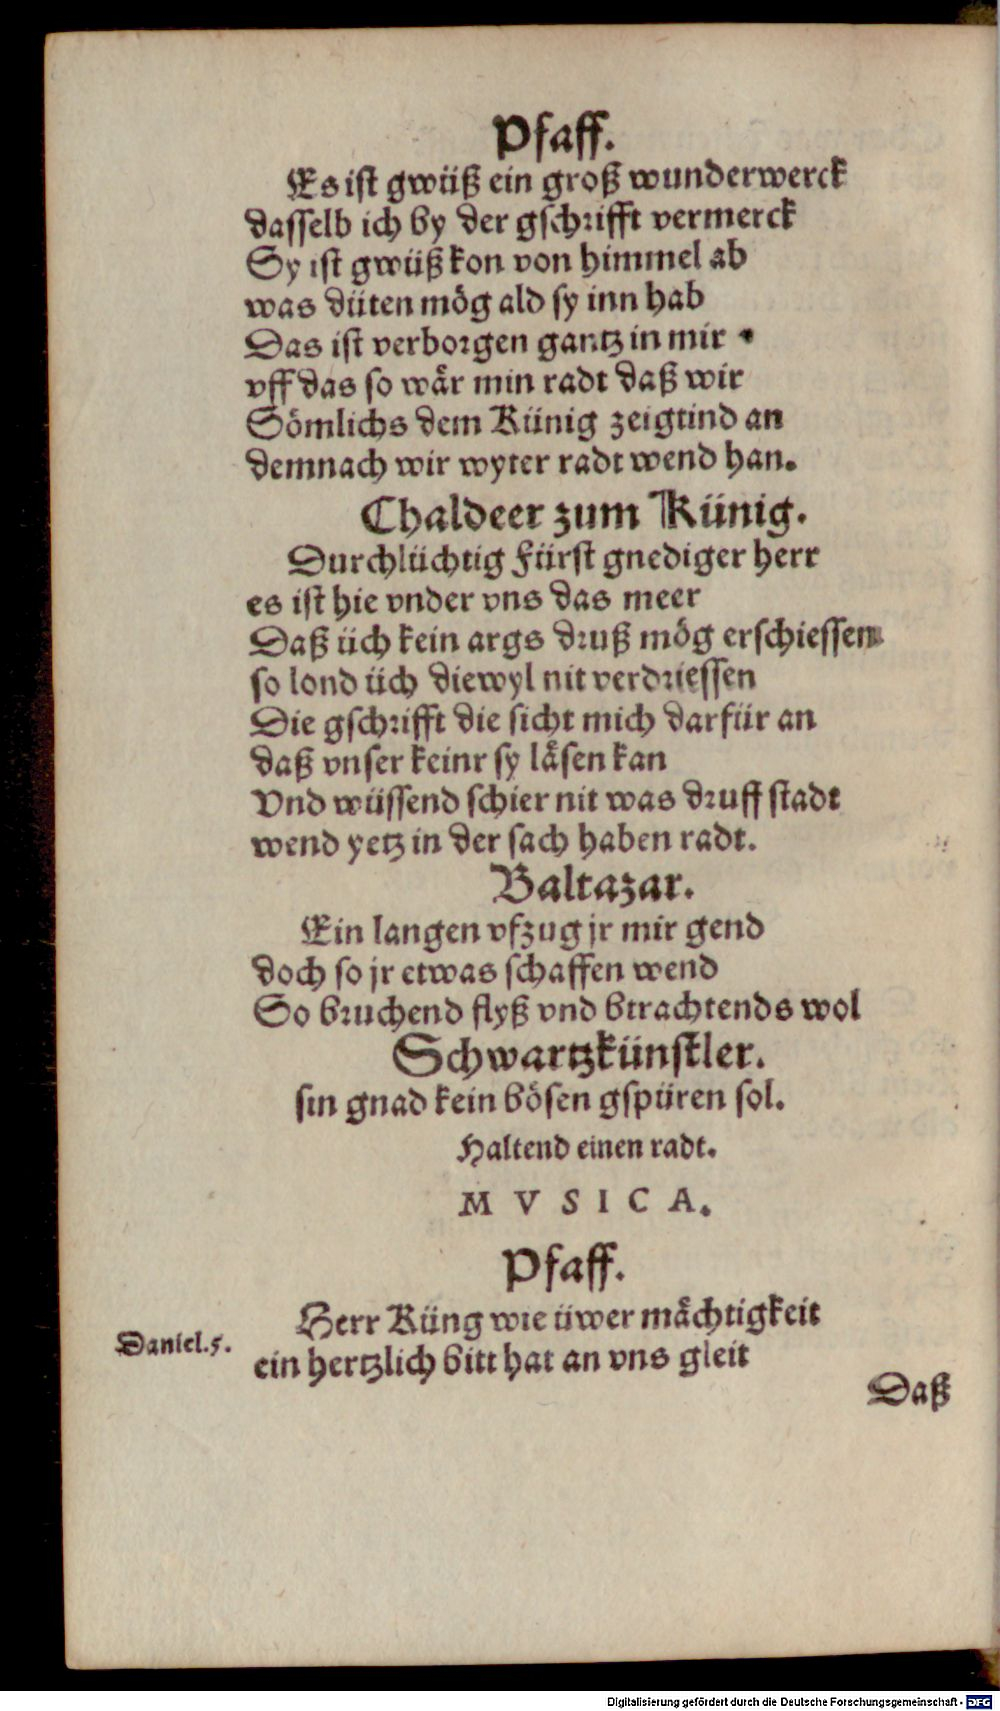 Pfaff.
Es ist gwüß ein groß wunderwerck
dasselb ich by der gschrifft vermerck
Sy ist gwüß kon von himmel ab
was düten mög ald sy inn hab
Das ist verborgen gantz in mir
vff das so wår min radt daß wir
Sömlichs dem Künig zeigtind an
demnach wir wyter radt wend han.
Chaldeer zum Künig.
Durchlüchtig Fürst gnediger herr
es ist hie vnder vns das meer
Daß üch kein args druß mög erschiessen
so lond üch diewyl nit verdriessen
Die gschrifft die sicht mich darfür an
daß vnser keinr sy låsen kan
Vnd wüssend schier nit was druff stadt
wend yetz in der sach haben radt.
Baltazar.
Ein langen vfzug jr mir gend
doch so jr etwas schaffen wend
So bruchend flyß vnd btrachtends wol
Schwartzkünstler.
sin gnad kein bösen gspüren sol.
Haltend einen radt.
MVSICA.
Pfaff.
Herr Küng wie üwer måchtigkeit
Daniel.5.
ein hertzlich bitt hat an vns gleit
Daß
Digitalisierung gefördert durch die Deutsche Forschungsgemeinschaft - DFG